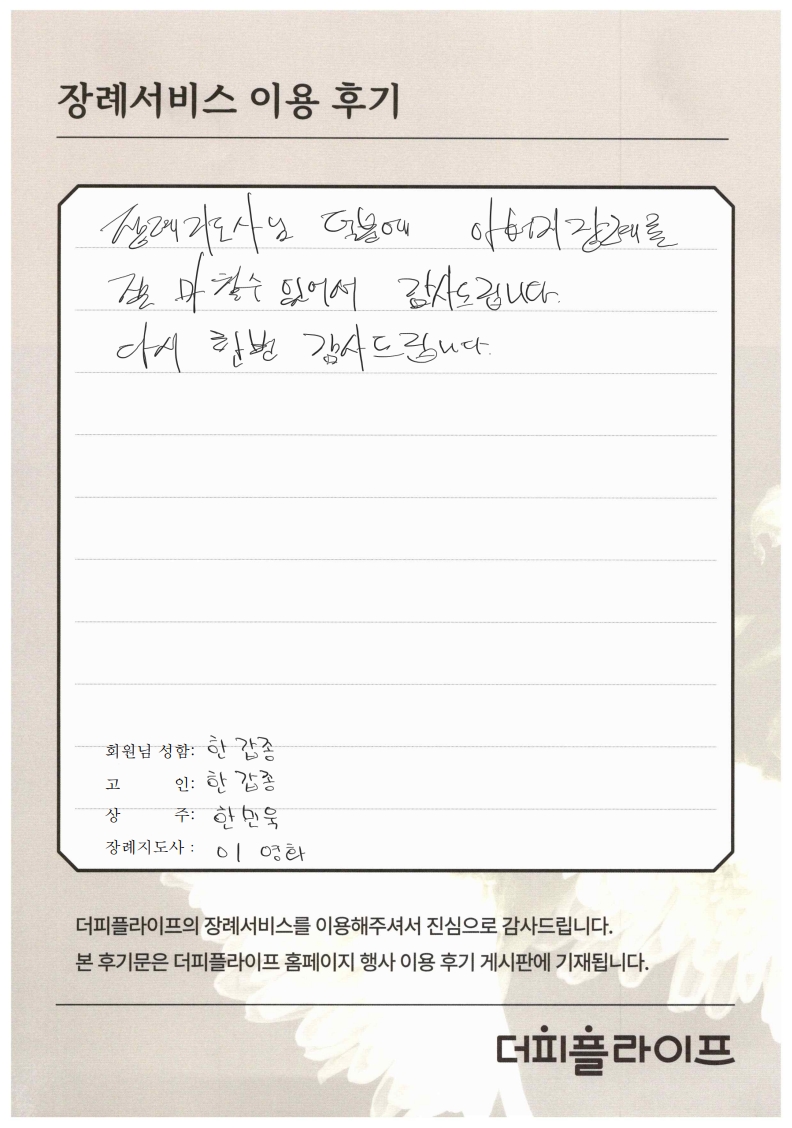 장례서비스 이용 후기
장례지도사님 덕분에 아버지 장례를
잘 마칠수 있어서 감사드립니다.
다시 한번 감사드립니다.
회원님 성함: 한갑종
고 인: 한갑종
상 주: 한민욱
장례지도사 : 이 영화
더피플라이프의 장례서비스를 이용해주셔서 진심으로 감사드립니다.
본 후기문은 더피플라이프 홈페이지 행사 이용 후기 게시판에 기재됩니다.
더피플라이프